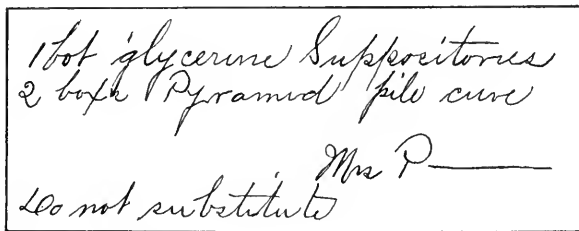 1 bot glycerine Suppositories
2 boxes Pyramid pile cure
Mrs P——
Do not substitute